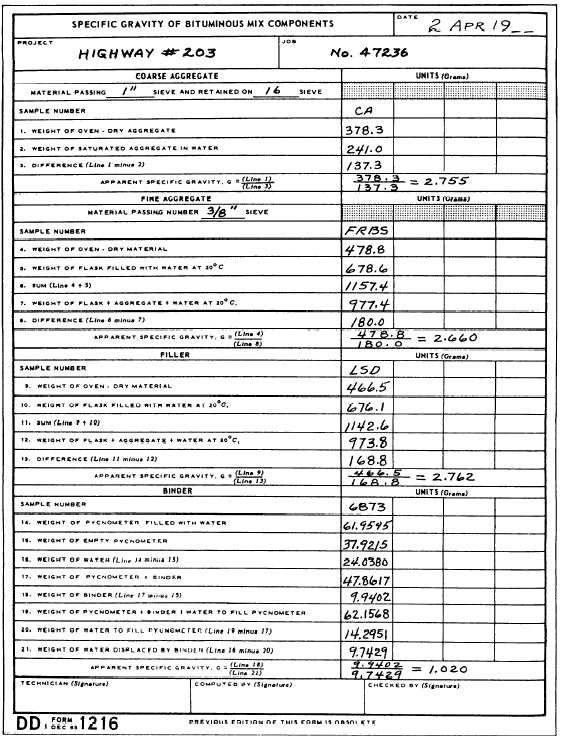 SPECIFIC GRAVITY OF BITUMINOUS MIX COMPONENTS
DATE
2 APR 19__
PROJECT
HIGHWAY #203
JOB
No. 47236
COARSE AGGREGATE UNITS (Grams)
MATERIAL PASSING 1" SIEVE AND RETAINED ON 16 SIEVE
SAMPLE NUMBER CA
1. WEIGHT OF OVEN - DRY AGGREGATE 378.3
2. WEIGHT OF SATURATED AGGREGATE IN WATER 241.0
3. DIFFERENCE (Line 1 minus 2) 137.3
APPARENT SPECIFIC GRAVITY, G = (Line 1) / (Line 3) 378.3 / 137.3 = 2.755
FINE AGGREGATE UNITS (Grams)
MATERIAL PASSING NUMBER 3/8" SIEVE
SAMPLE NUMBER FRBS
4. WEIGHT OF OVEN - DRY MATERIAL 478.8
5. WEIGHT OF FLASK FILLED WITH WATER AT 20°C 678.6
6. SUM (Line 4 + 5) 1157.4
7. WEIGHT OF FLASK + AGGREGATE + WATER AT 20°C, 977.4
8. DIFFERENCE (Line 6 minus 7) 180.0
APPARENT SPECIFIC GRAVITY, G = (Line 4) / (Line 8) 478.8 / 180.0 = 2.660
FILLER UNITS (Grams)
SAMPLE NUMBER LSD
9. WEIGHT OF OVEN - DRY MATERIAL 466.5
10. WEIGHT OF FLASK FILLED WITH WATER AT 20°C, 676.1
11. SUM (Line 9 + 10) 1142.6
12. WEIGHT OF FLASK + AGGREGATE + WATER AT 20°C, 973.8
13. DIFFERENCE (Line 11 minus 12) 168.8
APPARENT SPECIFIC GRAVITY, G = (Line 9) / (Line 13) 466.5 / 168.8 = 2.762
BINDER UNITS (Grams)
SAMPLE NUMBER 6873
14. WEIGHT OF PYCNOMETER FILLED WITH WATER 61.9595
15. WEIGHT OF EMPTY PYCNOMETER 37.9215
16. WEIGHT OF WATER (Line 14 minus 15) 24.0380
17. WEIGHT OF PYCNOMETER + BINDER 47.8617
18. WEIGHT OF BINDER (Line 17 minus 15) 9.9402
19. WEIGHT OF PYCNOMETER + BINDER + WATER TO FILL PYCNOMETER 62.1568
20. WEIGHT OF WATER TO FILL PYCNOMETER (Line 19 minus 17) 14.2951
21. WEIGHT OF WATER DISPLACED BY BINDER (Line 16 minus 20) 9.7429
APPARENT SPECIFIC GRAVITY, G = (Line 18) / (Line 21) 9.9402 / 9.7429 = 1.020
TECHNICIAN (Signature) COMPUTED BY (Signature) CHECKED BY (Signature)
DD FORM 1 DEC 65 1216 PREVIOUS EDITION OF THIS FORM IS OBSOLETE